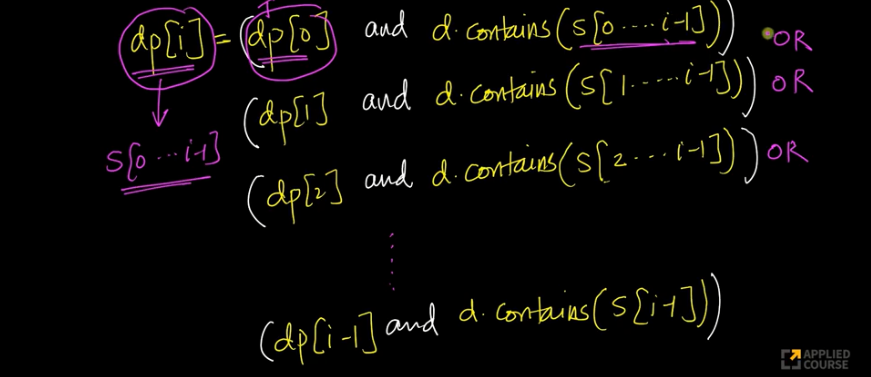 dp[i] = (dp[0] and d.contains(S[0....i-1])) OR
(dp[1] and d.contains(S[1.....i-1])) OR
S[0...i-1]
(dp[2] and d.contains(S[2...i-1])) OR
(dp[i-1] and d.contains(S[i-1]))
APPLIED
COURSE